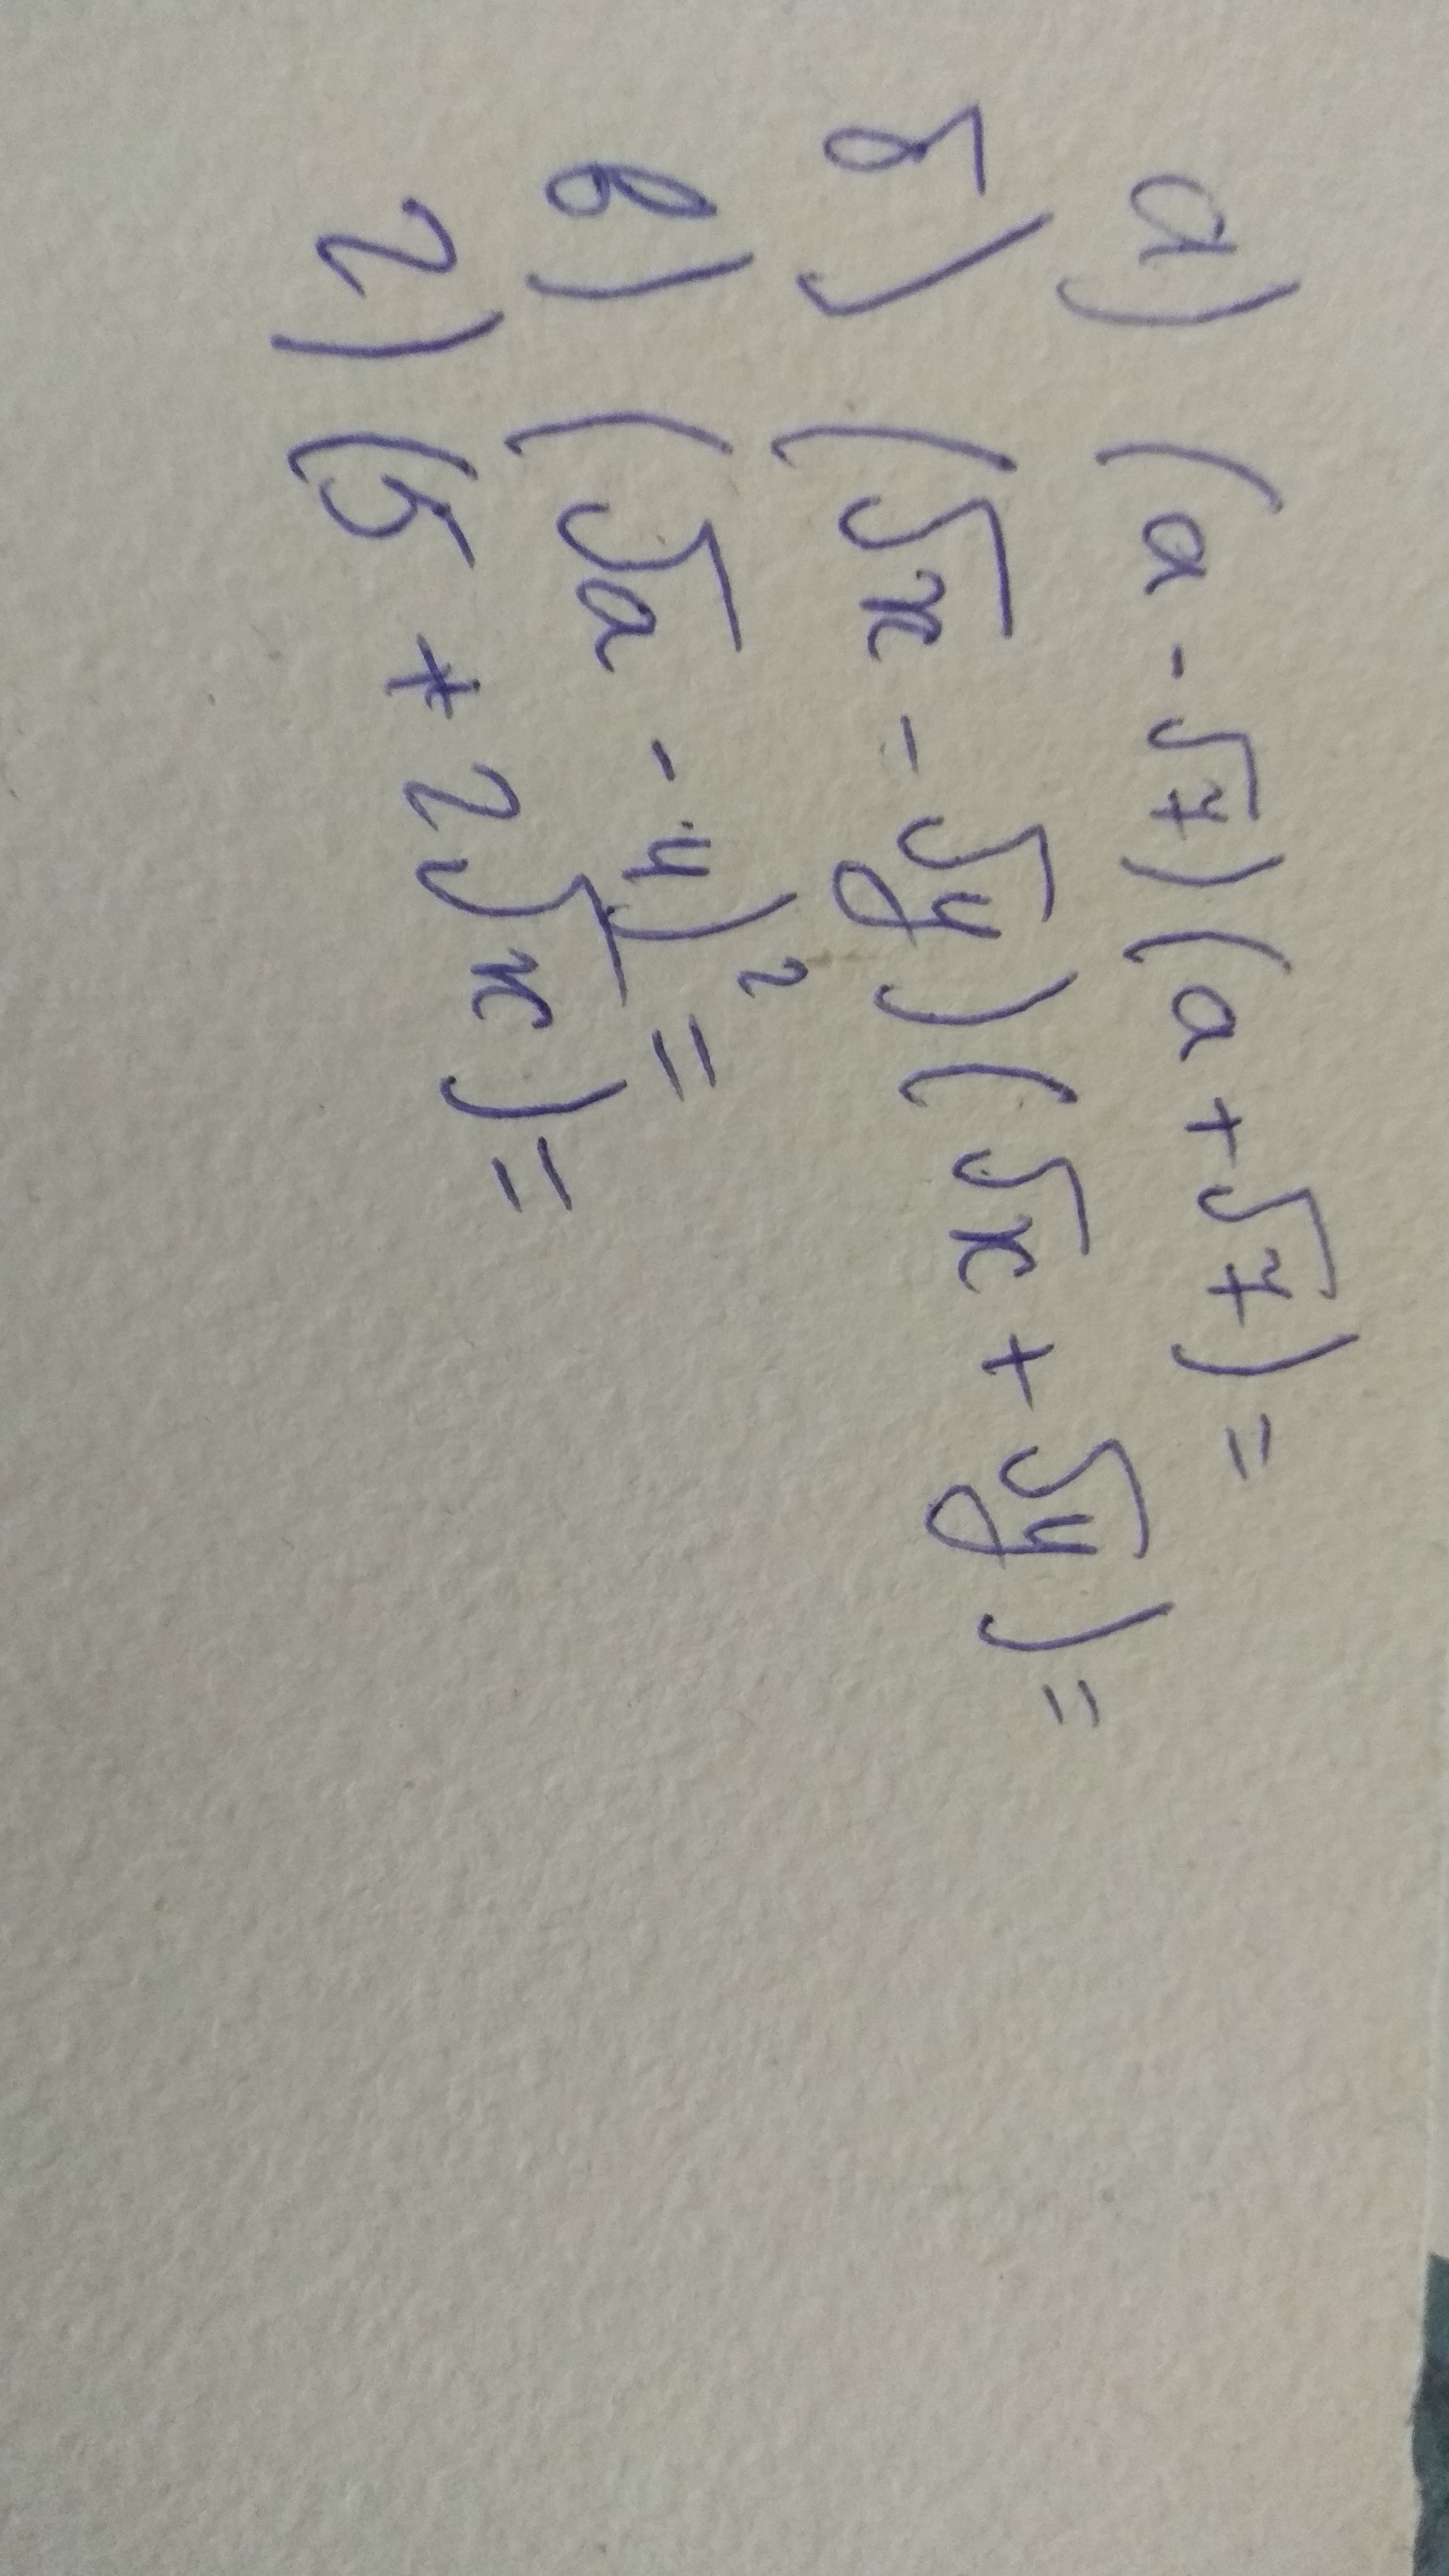 а) (a - √7)(a + √7) =
б) (√x - √y)(√x + √y) =
в) (√a - 4)² =
г) (5 + 2√x) =